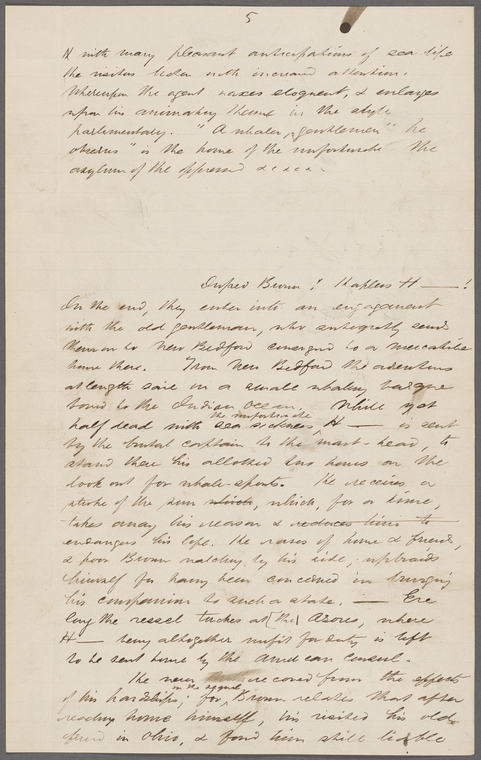 5
& with many pleasant anticipations of sea life
the visitors listen with increased attention.
Whereupon the agent waxes eloquent, & enlarges
upon his animating theme in the style
parliamentary. "A whaler, gentlemen" he
observes "is the home of the unfortunate the
asylum of the oppressed &c &c.
Duped Brown! Hapless H——!
In the end, they enter into an engagement
with the old gentleman, who subsequently sends
them on to New Bedford consigned to a mercantile
house there. From New Bedford the adventurers
at length sail in a small whaling barque
bound to the Indian Ocean. While yet
half dead with sea sickness, the unfortunate H—— is sent
by the brutal captain to the mast-head, to
stand there his allotted two hours on the
look out for whale-spouts. He receives a
stroke of the sun which, which, for a time,
takes away his reason & reduces him to
endangers his life. He raves of home & friends,
& poor Brown watching by his side, upbraids
himself for having been concerned in bringing
his companion to such a state. — Ere
long the vessel touches at (the) Azores, where
H— being altogether unfit for duty is left
to be sent home by the American consul.
He never recovered from the effects
of his hardships; for, in the sequel Brown relates that after
reaching home himself, he visited his old
friend in Ohio, & found him still liable